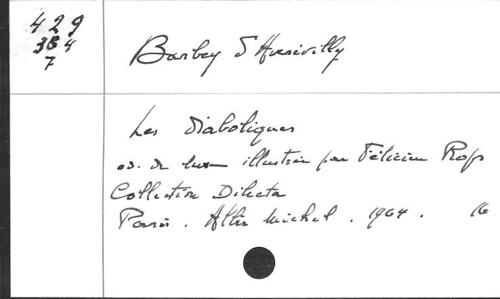 429
384
7
Barbey d'Aurévilly
Les Diaboliques
éd. de luxe illustrée par Félicien Rops
Collection Dilecta
Paris. Albin Michel. 1964. 16